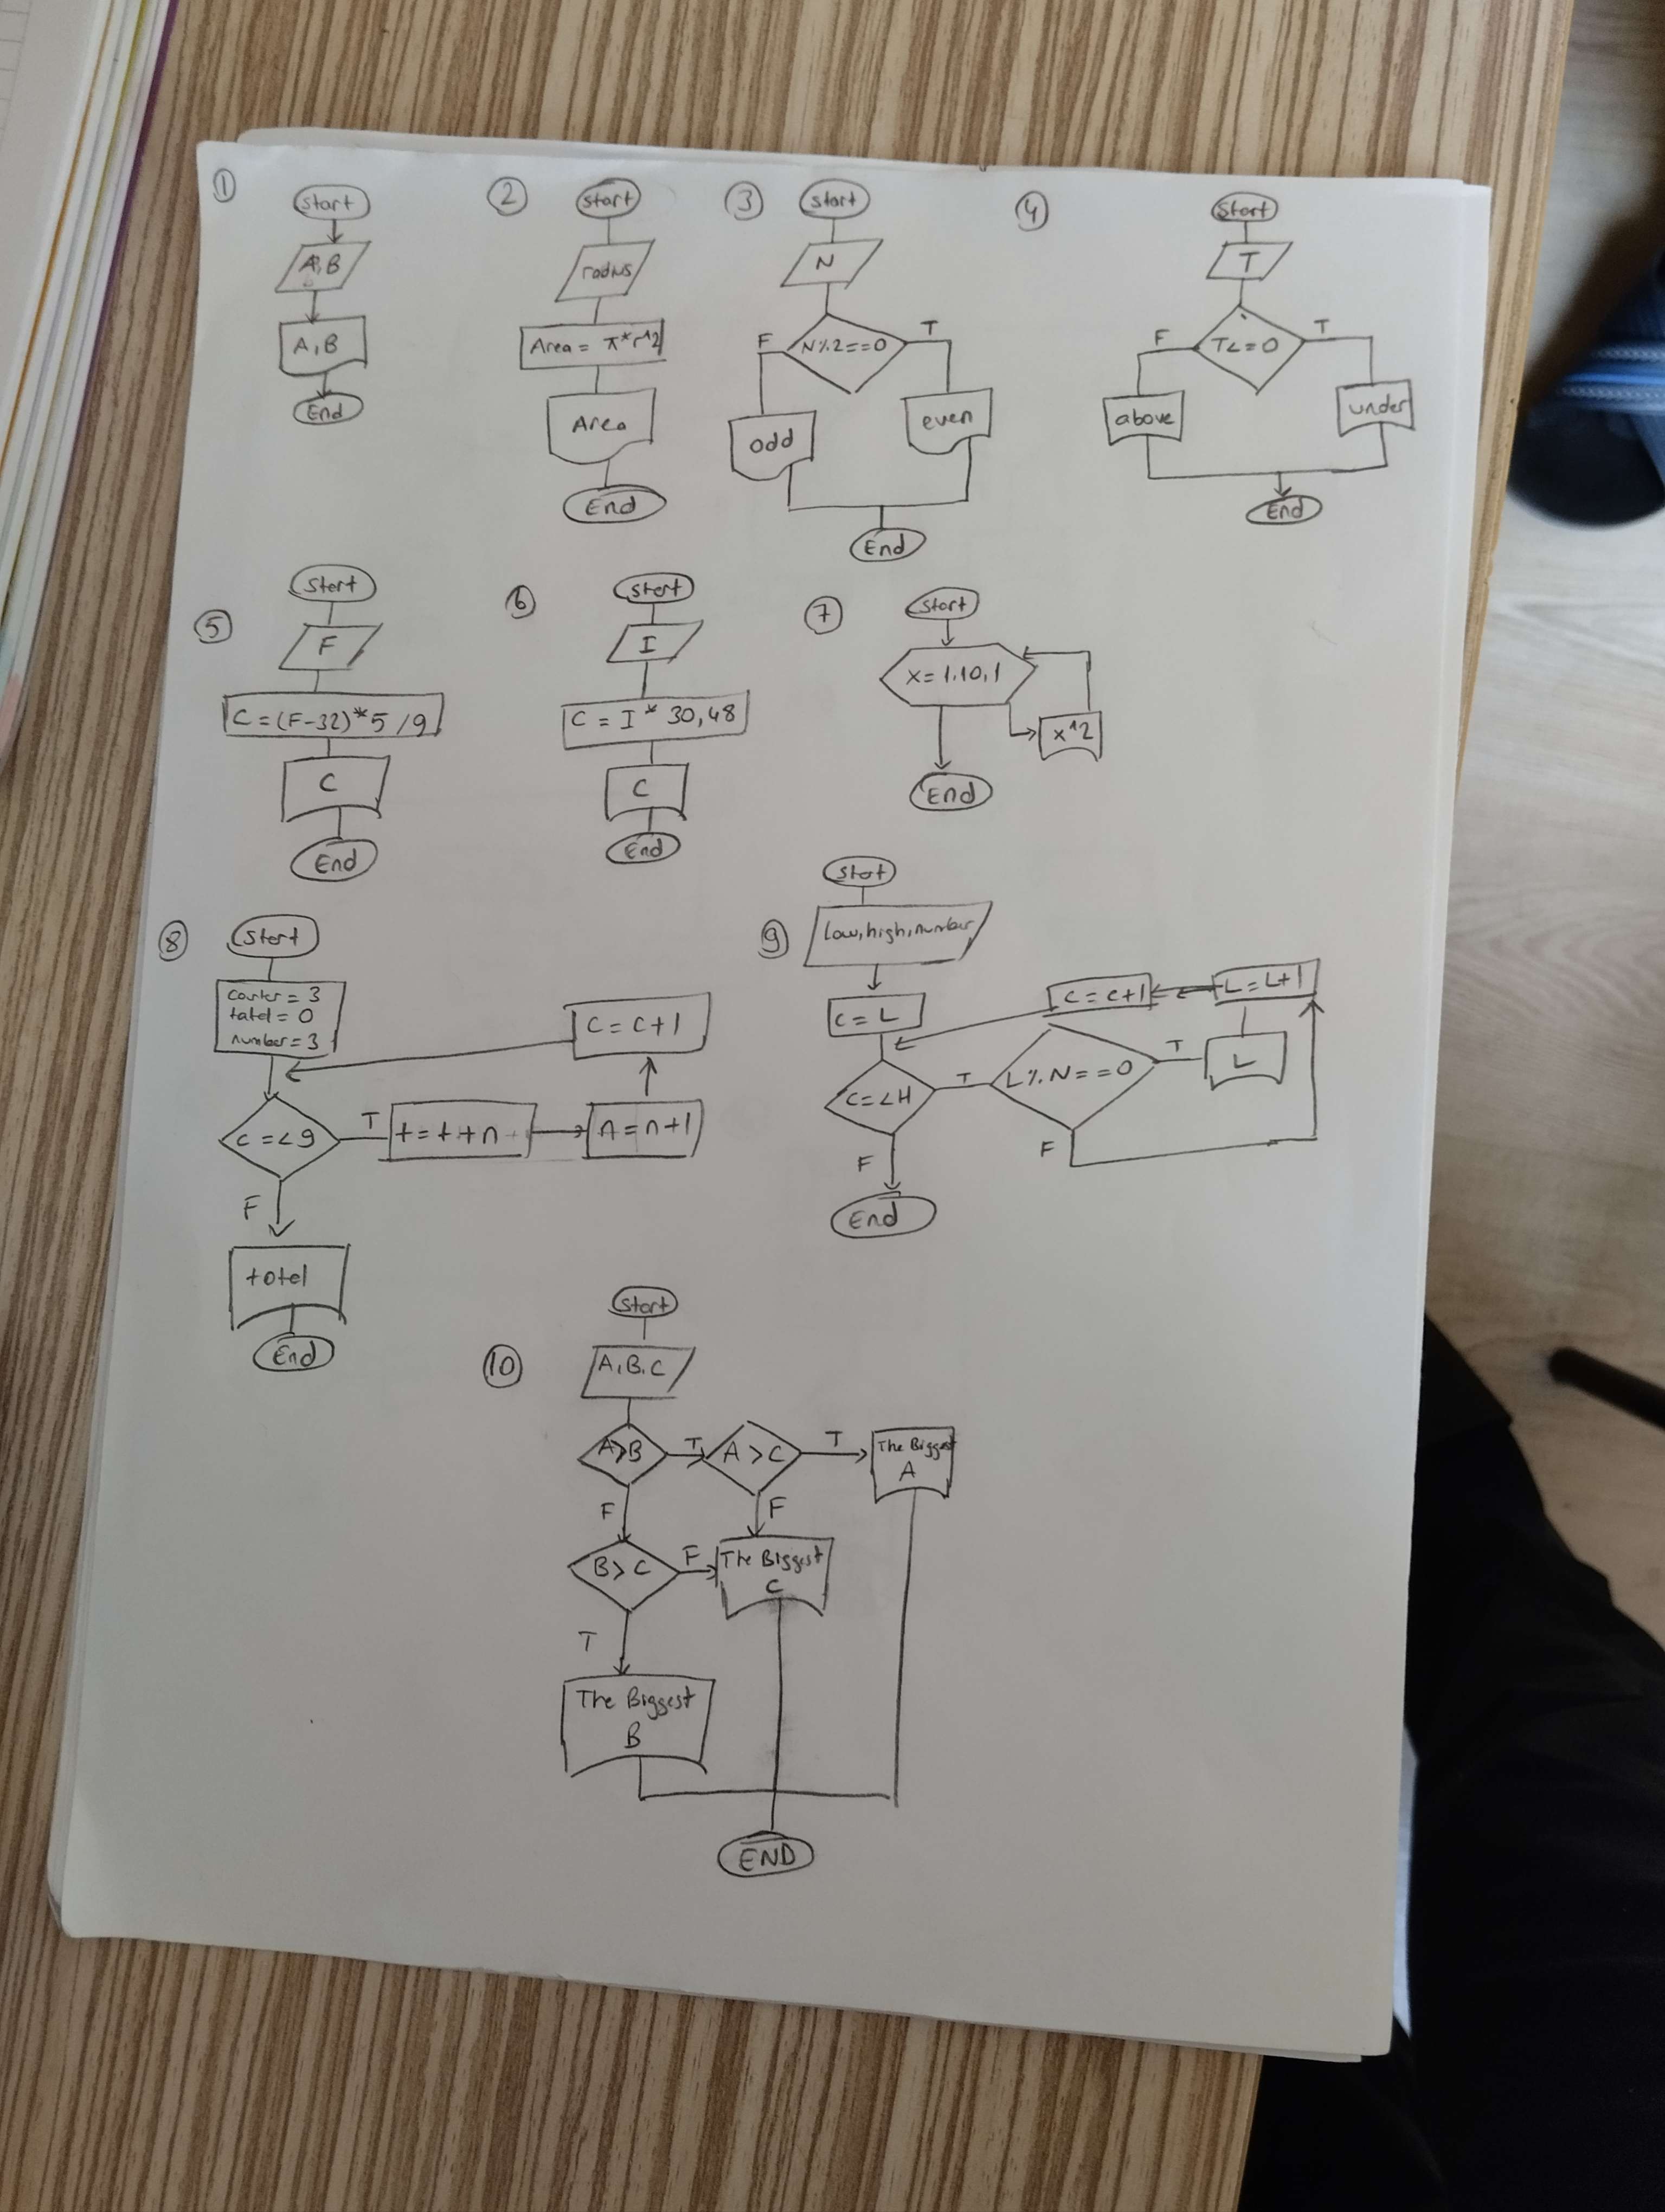 ①
Start
A,B
A,B
End
②
Start
radius
Area = π*r^2
Area
End
③
Start
N
N%2==0
F
T
odd
even
End
④
Start
T
T<=0
F
T
above
under
End
⑤
Start
F
C=(F-32)*5/9
C
End
⑥
Start
I
C = I * 30,48
C
End
⑦
Start
x=1,10,1
x^2
End
⑧
Start
counter = 3
total = 0
number = 3
c =<9
T
t=t+n
n=n+1
c=c+1
F
total
End
⑨
Start
low,high,number
c=L
C=<H
T
L%N==0
T
L
L=L+1
c=c+1
F
F
End
⑩
Start
A,B,C
A>B
T
A>C
T
The Biggest
A
F
F
B>C
F
The Biggest
C
T
The Biggest
B
END